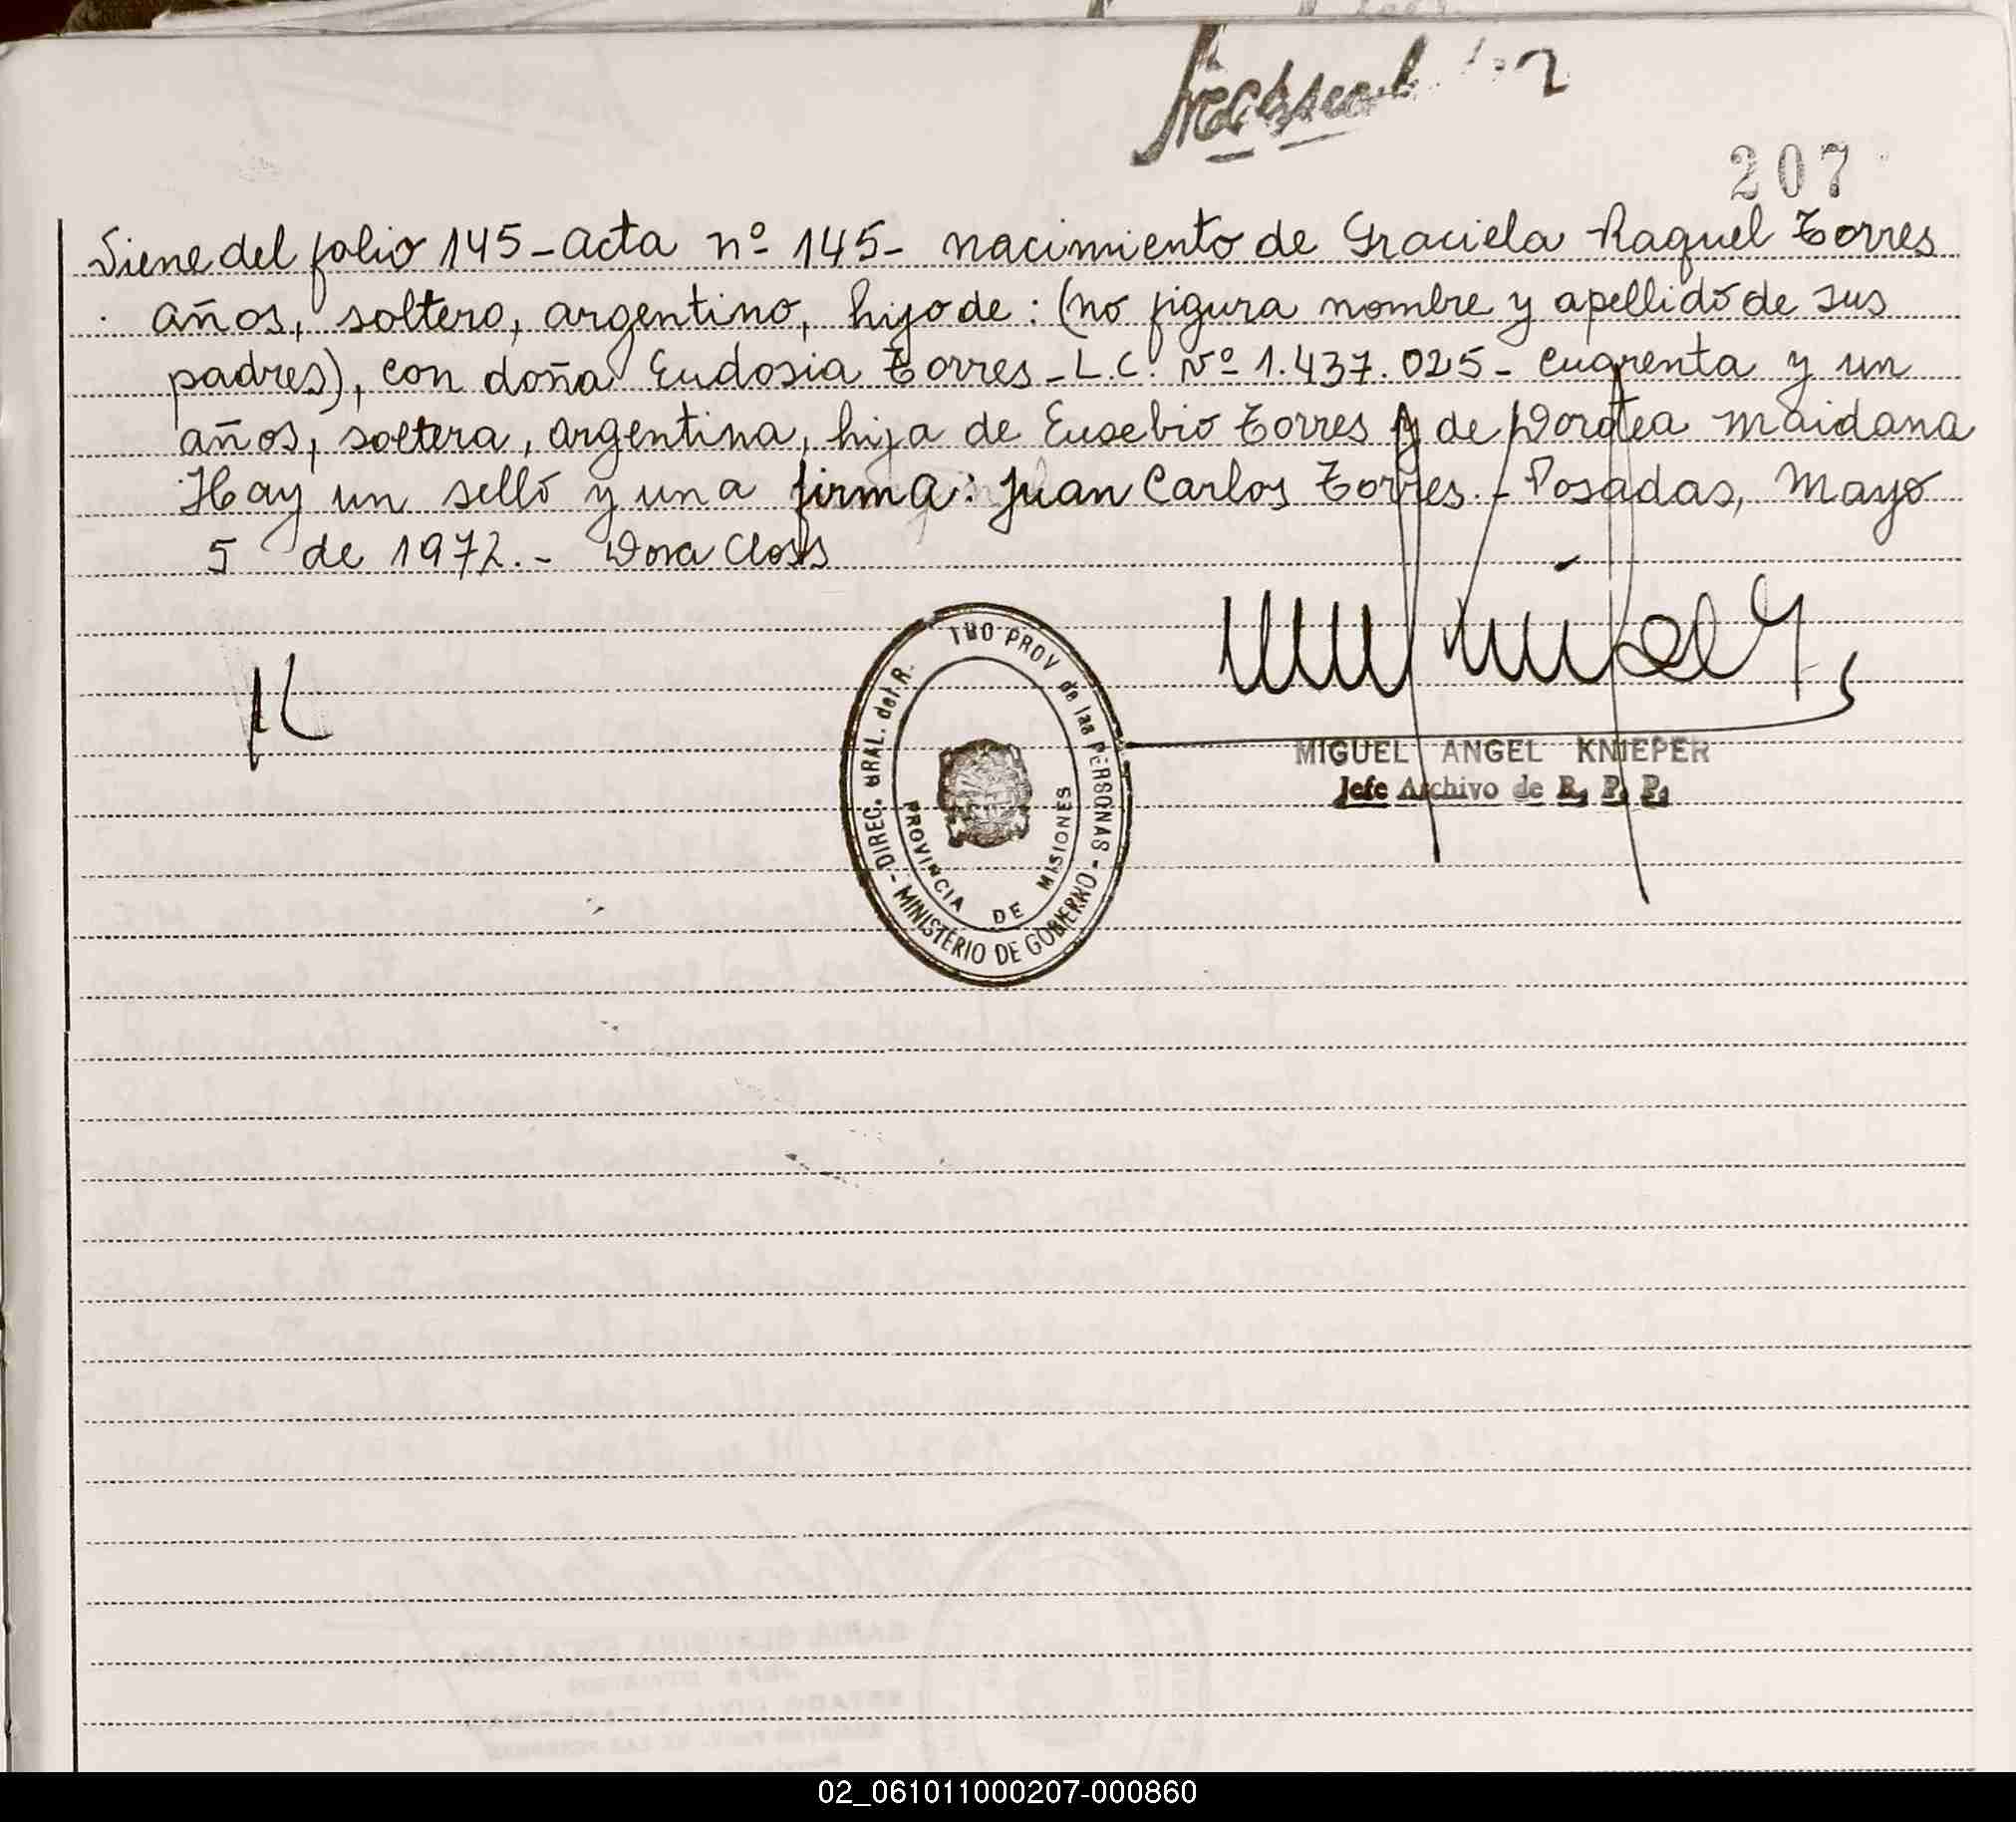 207
Viene del folio 145 - Acta nº 145 - nacimiento de Graciela Raquel Torres
años, soltero, argentino, hijo de: (no figura nombre y apellido de sus
padres), con doña Eudosia Torres - L.C. Nº 1.437.025 - cuarenta y un
años, soltera, argentina, hija de Eusebio Torres y de Dorotea Maidana
Hay un sello y una firma: Juan Carlos Torres. - Posadas, Mayo
5 de 1972. - Dora Closs
DIREC. GRAL. del R. TVO PROV de las PERSONAS - MINISTERIO DE GOBIERNO -
PROVINCIA DE MISIONES
MIGUEL ANGEL KNIEPER
Jefe Archivo de R. P. P.
02_061011000207-000860